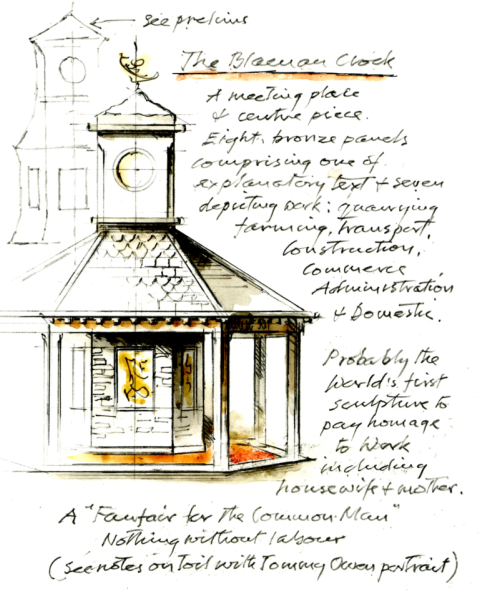 see prelims
The Blaenau Clock
A meeting place
& centre piece.
Eight, bronze panels
comprising one of
explanatory text + seven
depicting work: quarrying
farming, transport,
construction,
commerce,
Administration
& Domestic.
Probably the
World's first
sculpture to
pay homage
to work
including
housewife & mother.
A "Fanfair for the Common Man"
Nothing without labour
(see notes on Toil with Tommy Owen portrait)